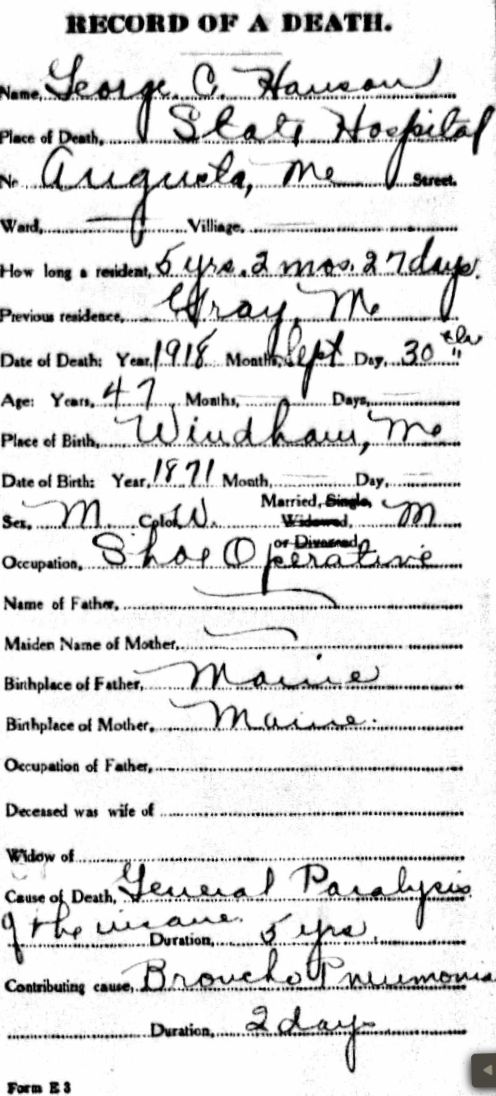 RECORD OF A DEATH.
Name, George C. Hanson
Place of Death, State Hospital
No Augusta, Me Street.
Ward, Village,
How long a resident, 5 yrs. 2 mos. 27 days.
Previous residence, Gray, Me
Date of Death: Year, 1918 Month, Sept Day, 30th
Age: Years, 47 Months, Days,
Place of Birth, Windham, Me
Date of Birth: Year, 1871 Month, Day,
Sex, M. Color W. Married, Single, Widowed, or Divorced, M
Occupation, Shoe Operative
Name of Father,
Maiden Name of Mother,
Birthplace of Father, Maine
Birthplace of Mother, Maine.
Occupation of Father,
Deceased was wife of
Widow of
Cause of Death, General Paralysis
of the insane. Duration, 5 yrs.
Contributing cause, Broncho Pneumonia
Duration, 2 days
Form E 3